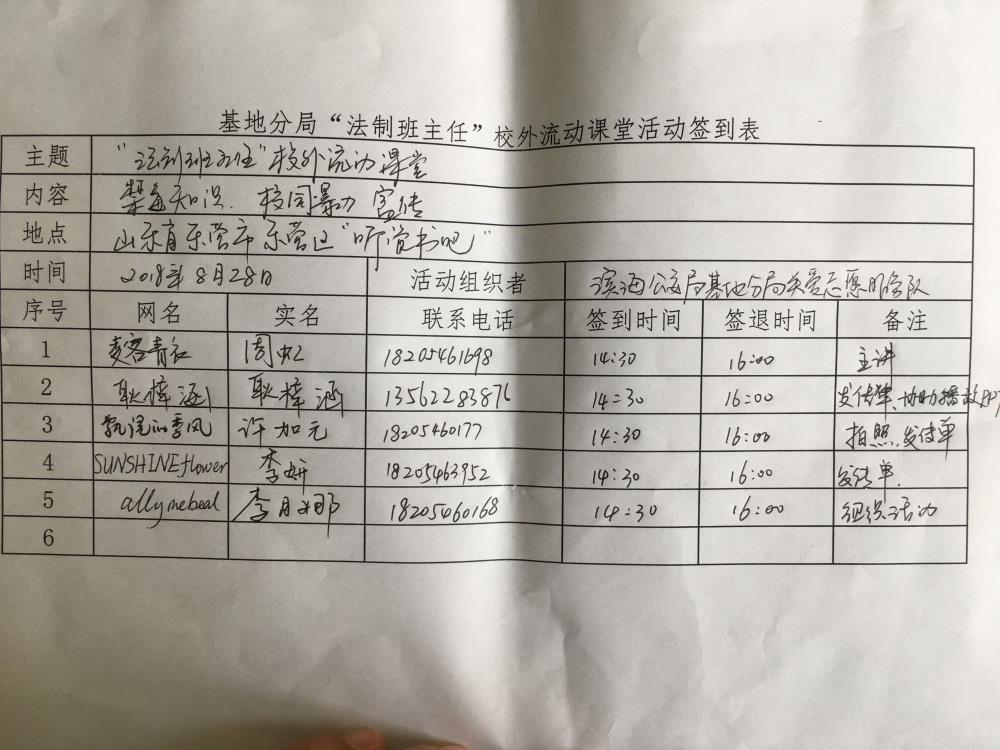 基地分局“法制班主任”校外流动课堂活动签到表
主题 “法制班主任”校外流动课堂
内容 禁毒知识、校园暴力 宣传
地点 山东省东营市东营区“听党书吧”
时间 2018年8月28日 活动组织者 滨海公安局基地分局关爱志愿服务队
序号 网名 实名 联系电话 签到时间 签退时间 备注
1 青红 周虹 18205461698 14:30 16:00 主讲
2 耿梓涵 耿梓涵 13562283876 14:30 16:00 发传单、协助播放PPT
3 季风 许加元 18205460177 14:30 16:00 拍照、发传单
4 SUNSHINEflower 李妍 18205463952 14:30 16:00 发传单
5 allymebeal 李月娜 18205460168 14:30 16:00 组织活动
6